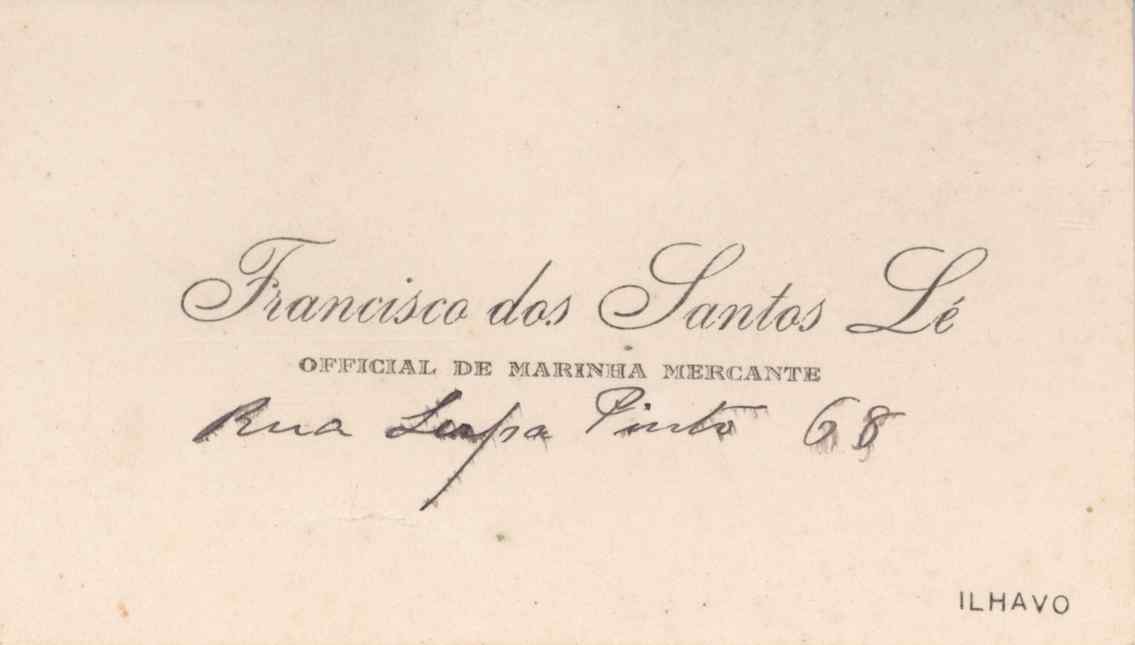 Francisco dos Santos Lé
OFFICIAL DE MARINHA MERCANTE
Rua Serpa Pinto 68
ILHAVO